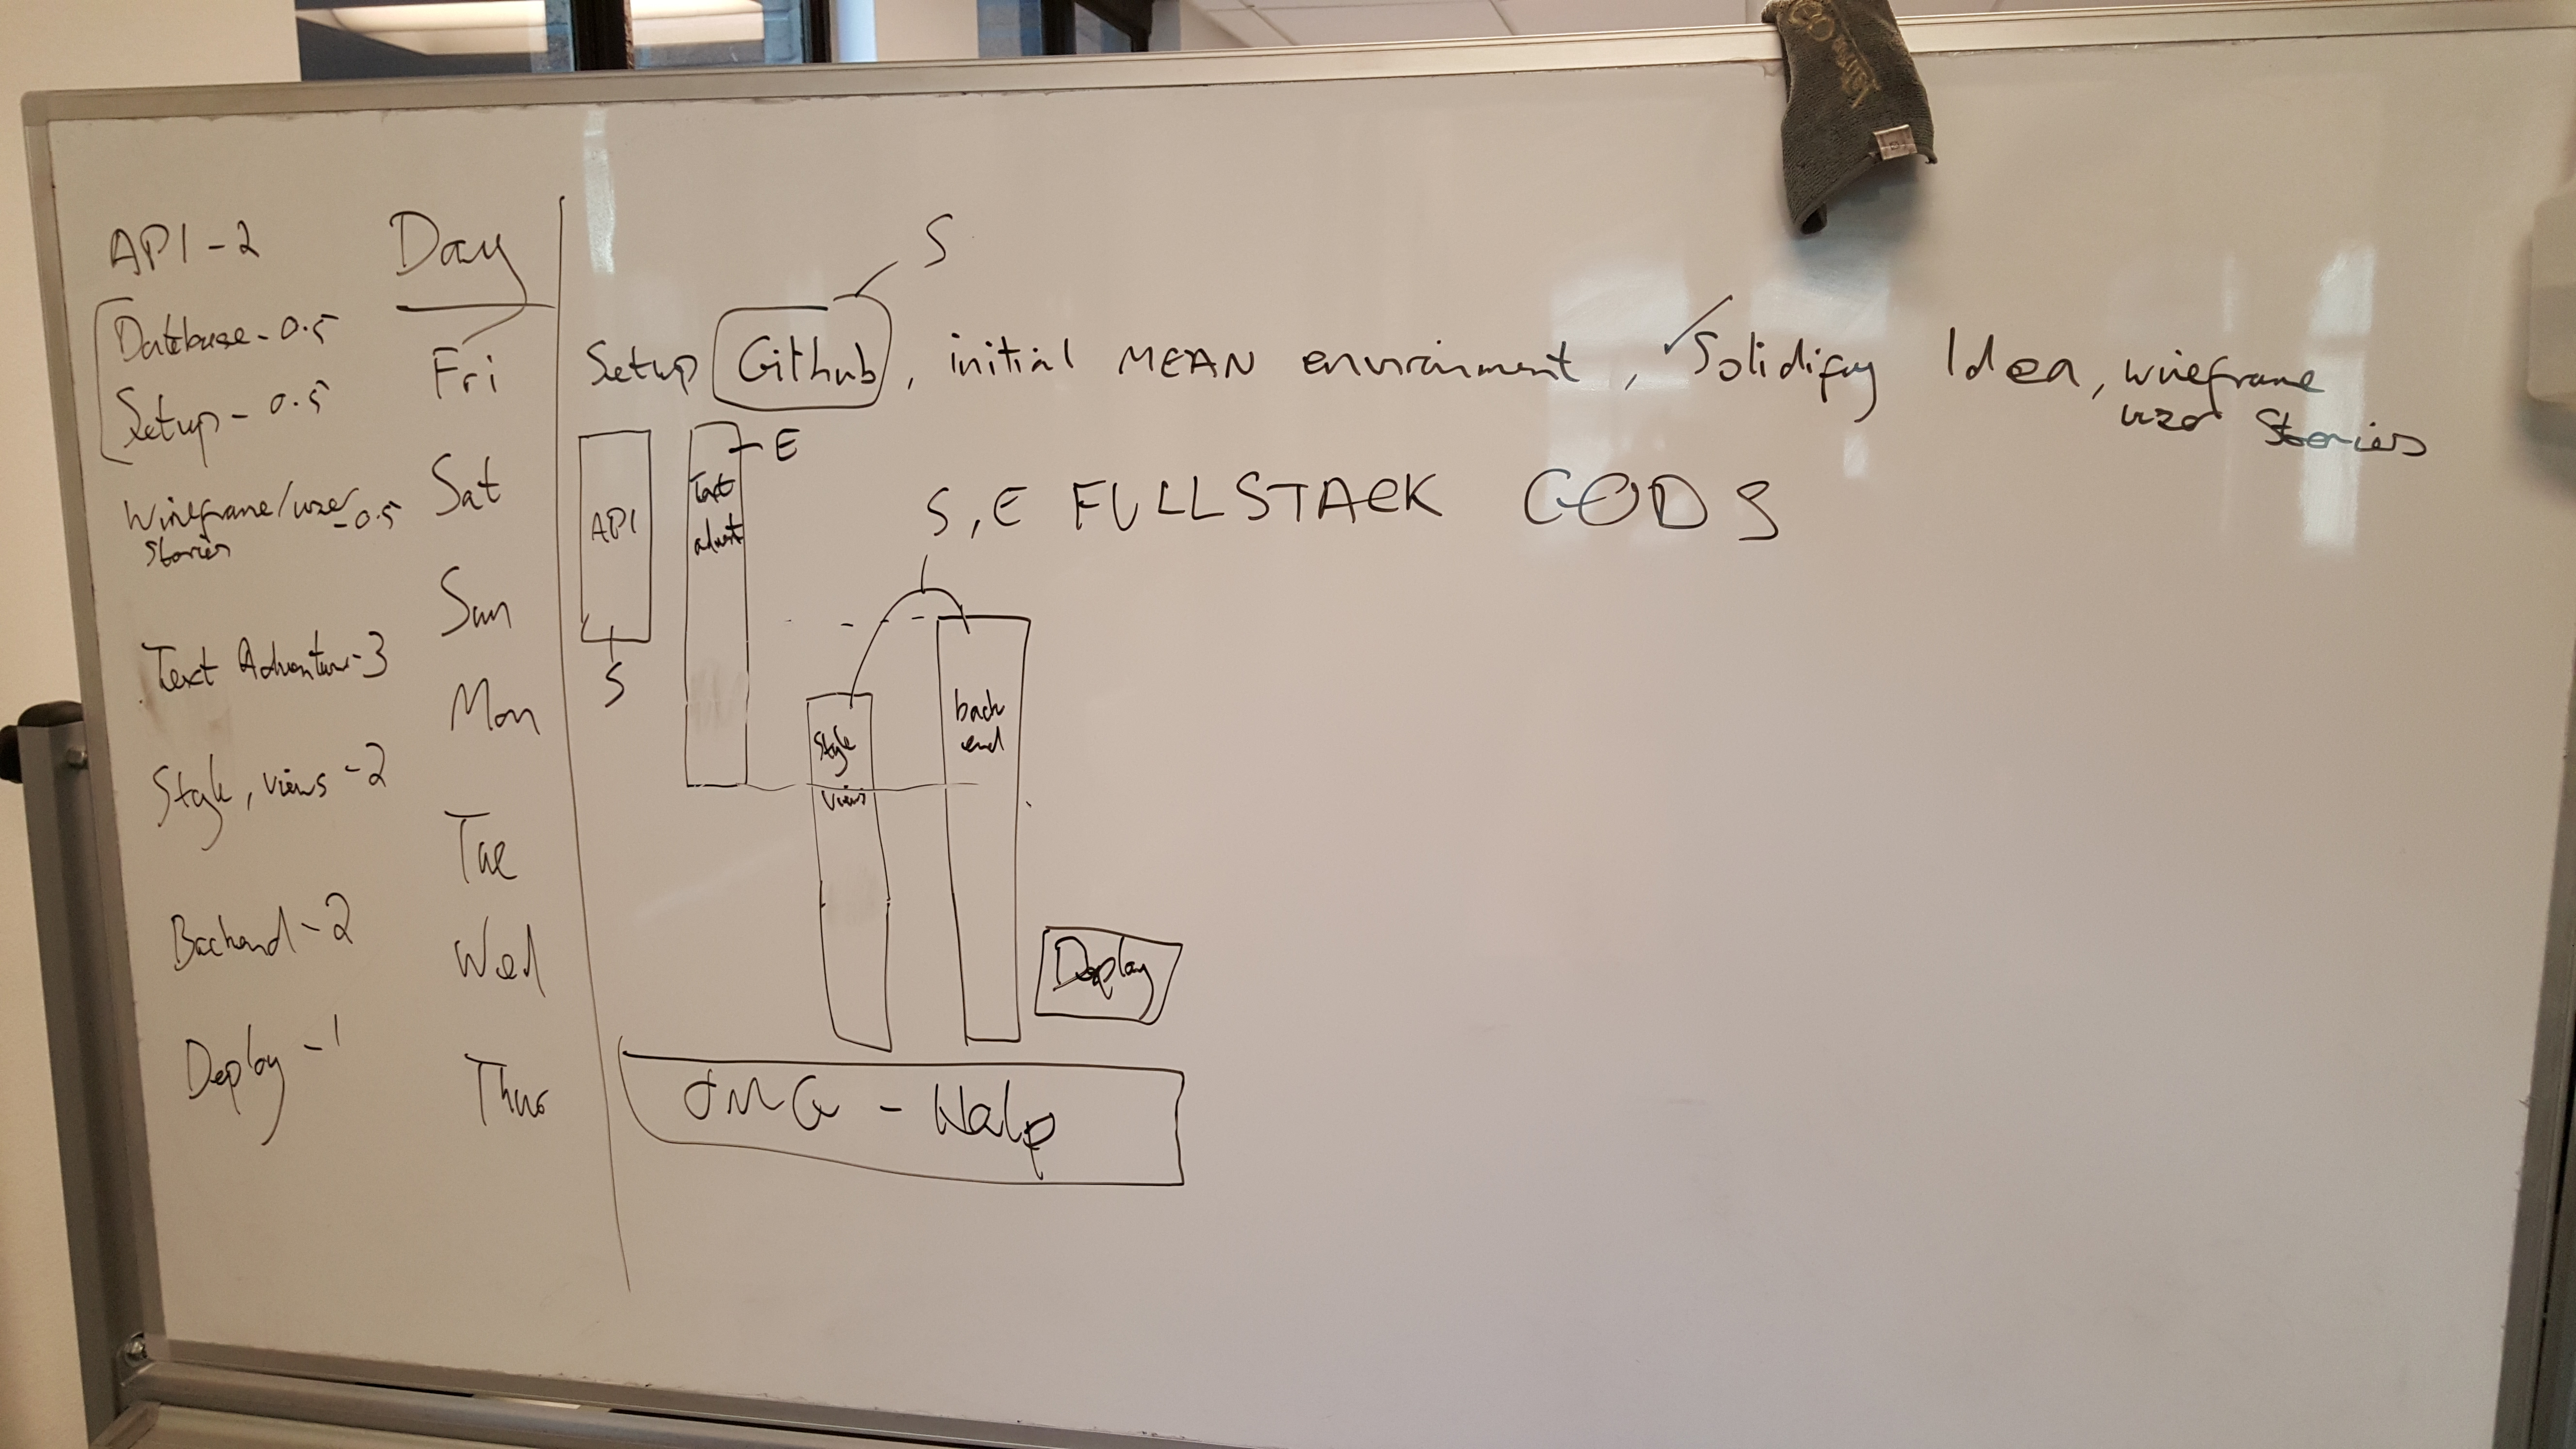 API - 2
Database - 0.5
Setup - 0.5
Wireframe/user - 0.5
Stories
Text Adventur - 3
Style, views - 2
Backend - 2
Deploy - 1
Day
Fri
Sat
Sun
Mon
Tue
Wed
Thus
S
Setup Github, initial MEAN envirinment, ✓ Solidify Idea, wireframe
user Stories
E
API
Text
advnt
S
S, E FULLSTACK GODS
Style
views
back
end
Deploy
OMG - Halp